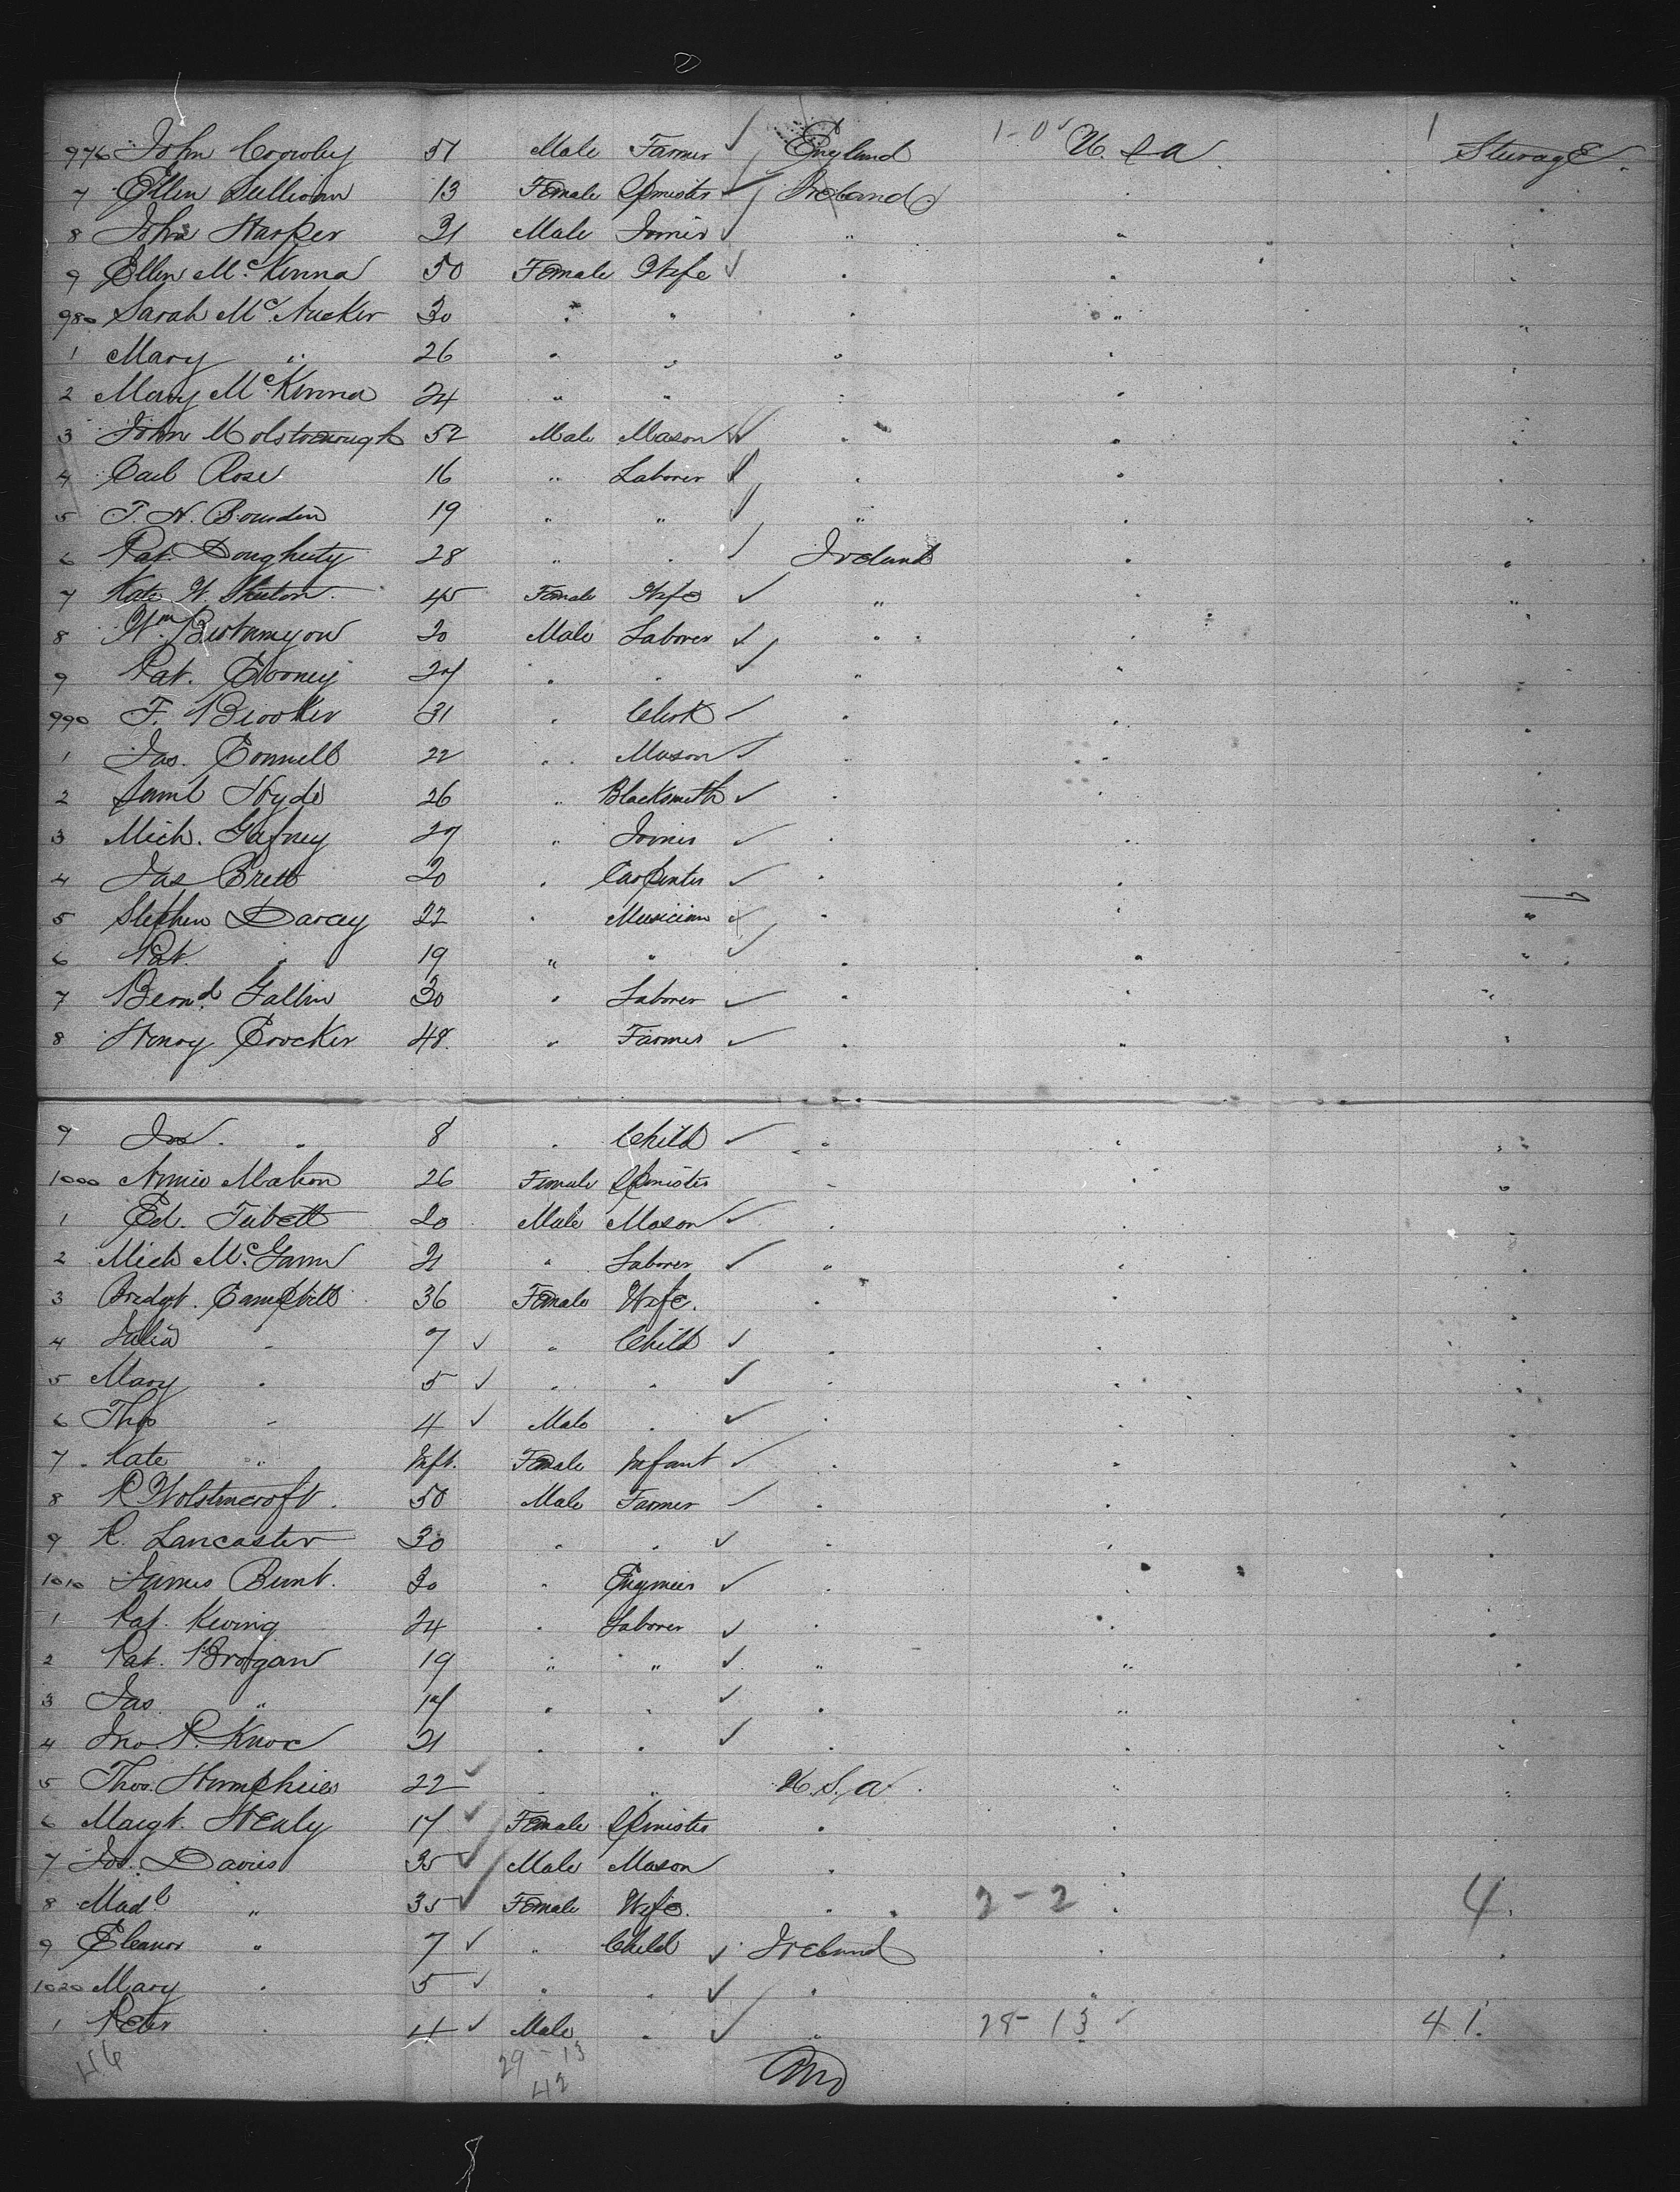 976 John Crowley 51 Male Farmer ✓ England 1-0 ✓ U. S a. 1 Steerage
7 Ellen Sullivan 13 Female Spinster ✓ Ireland " "
8 John Harper 21 Male Joiner ✓ " " "
9 Ellen McKenna 50 Female Wife ✓ " " "
980 Sarah McNucker 30 " " " " "
1 Mary " 26 " " " " "
2 Mary McKenna 24 " " " " "
3 John 52 Male Mason ✓ " " "
4 Carl Rose 16 " Laborer ✓ " " "
5 T. N. Bowden 19 " " ✓ " " "
6 Pat. Dougherty 28 " " ✓ Ireland " "
7 Kate W. 45 Female Wife ✓ " " "
8 Wm 20 Male Laborer ✓ " " "
9 Pat. 27 " " ✓ " " "
990 F. Brooker 31 " Clerk ✓ " " "
1 Jas. Connell 22 " Mason ✓ " " "
2 Saml Hyde 26 " Blacksmith ✓ " " "
3 Mich. Gafney 27 " Joiner ✓ " " "
4 Jas Brett 20 " Carpenter ✓ " " "
5 Stephen Darcey 22 " Musician ✓ " " "
6 Pat. " 19 " " ✓ " " "
7 Bernd. Gallin 30 " Laborer ✓ " " "
8 Henry Crocker 48. " Farmer ✓ " " "
9 Jos. " 8 " Child ✓ " " "
1000 Annie Mahon 26 Female Spinster " " "
1 Ed. Tibett 20 Male Mason ✓ " " "
2 Mich McGann 21 " Laborer ✓ " " "
3 Bridgt. Campbell 36 Female Wife. " " "
4 Julia " 7 ✓ " Child ✓ " " "
5 Mary " 5 ✓ " " ✓ " " "
6 Thos " 4 ✓ Male " ✓ " " "
7 Kate " Inft. Female Infant ✓ " " "
8 R Wolstencroft. 50 Male Farmer ✓ " " "
9 R. Lancaster 30 " " ✓ " " "
1010 James Bunt. 30 " Engineer ✓ " " "
1 Pat. Keving 24 " Laborer ✓ " " "
2 Pat. Brogan 19 " " ✓ " " "
3 Jas. " 17 " " ✓ " " "
4 Jno. P. Knox 21 " " ✓ " " "
5 Thos. Humphries 22 ✓ " " U. S. a. " "
6 Margt. Healy 17 ✓ Female Spinster " " "
7 Jos. Davies 35 ✓ Male Mason " " "
8 Madl " 35 ✓ Female Wife. " 2-2 " 4 "
9 Eleanor " 7 ✓ " Child ✓ Ireland " "
1020 Mary " 5 ✓ " " ✓ " " "
1 Peter " 4 ✓ Male " ✓ " 28-13 ✓ 41.
46 29-13
42